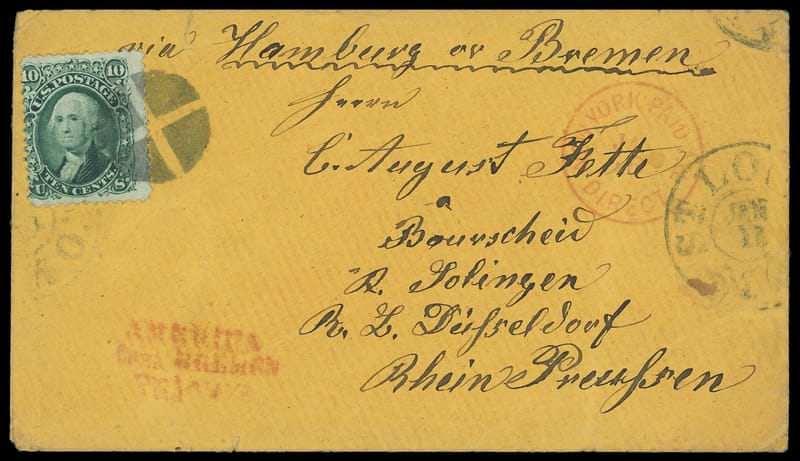 via Hamburg or Bremen
Herrn
C. August Fette
Bourscheid
R. Solingen
R. B. Düsseldorf
Rhein Preussen
10 10
U.S. POSTAGE
U TEN CENTS S
YORK PAID
DIRECT
ST LO
JAN
AMERICA
BREMEN